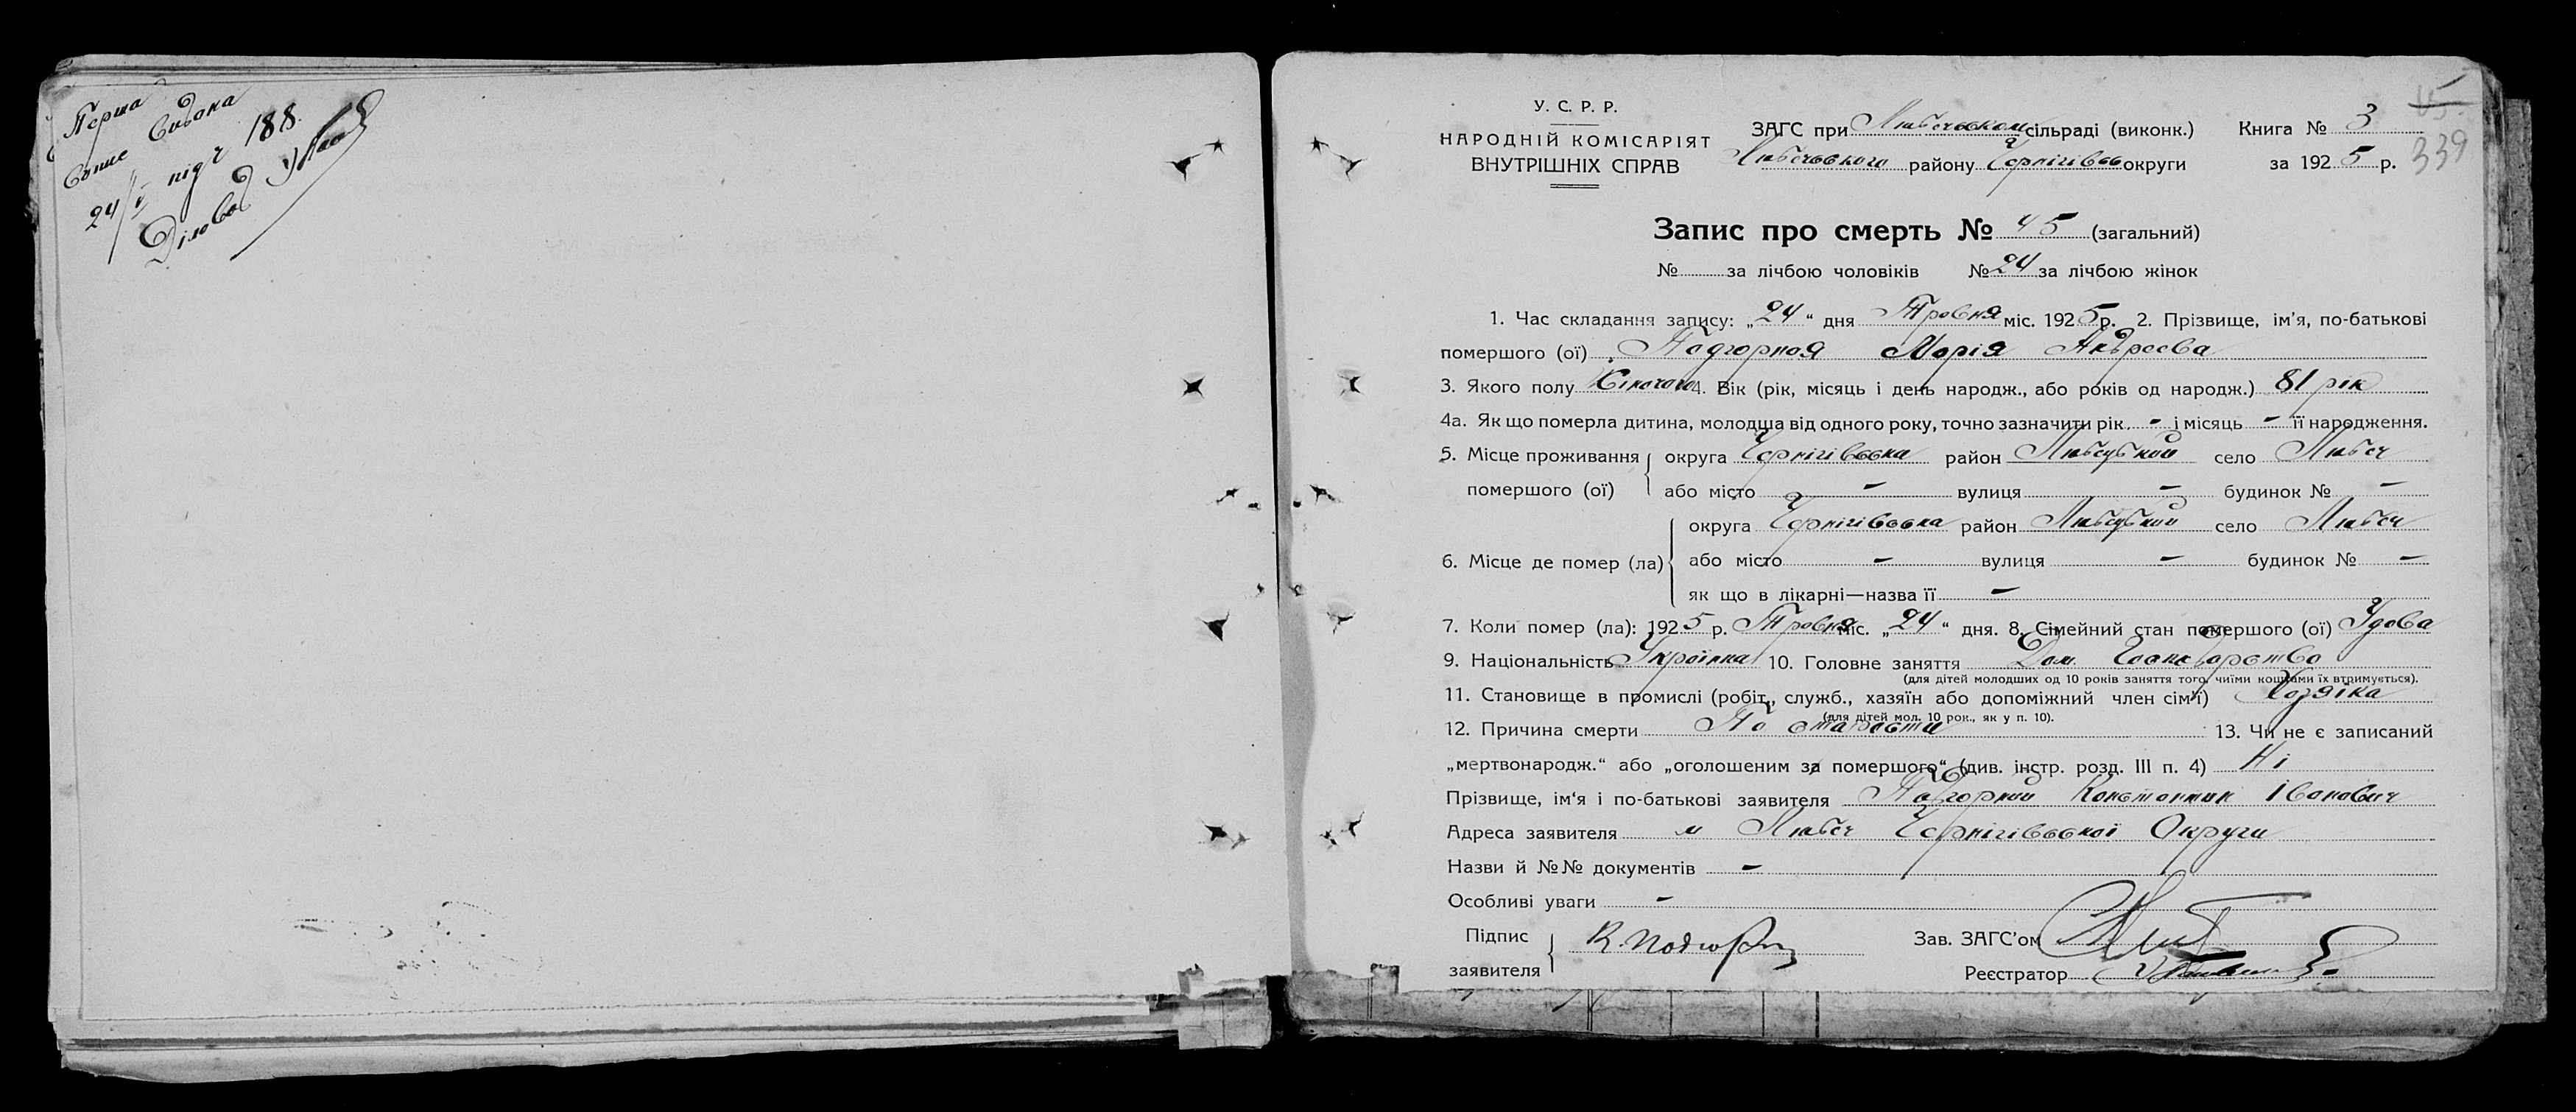 Перша
Випис Видана
24/V під ч 188.
Діловод
У. С. Р. Р.
НАРОДНІЙ КОМІСАРІЯТ
ВНУТРІШНІХ СПРАВ
ЗАГС при Любечськом сільраді (виконк.) Книга № 3
Любечського району Чернігівськ округи за 1925 р.
45
339
Запис про смерть № 45 (загальний)
№ за лічбою чоловіків № 24 за лічбою жінок
1. Час складання запису: „24“ дня Травня міс. 1925 р. 2. Прізвище, ім’я, по-батькові
помершого (ої) Подгорная Марія Андреева
3. Якого полу Жіночого 4. Вік (рік, місяць і день народж., або років од народж.) 81 рік
4а. Як що померла дитина, молодша від одного року, точно зазначити рік - і місяць - її народження.
5. Місце проживання помершого (ої) округа Чернігівська район Любецький село Любеч
або місто - вулиця - будинок № -
6. Місце де помер (ла) округа Чернігівська район Любецький село Любеч
або місто - вулиця - будинок № -
як що в лікарні—назва її -
7. Коли помер (ла): 1925 р. Травня міс. „24“ дня. 8. Сімейний стан помершого (ої) Удова
9. Національність Українка 10. Головне заняття Дом. Господарство
(для дітей молодших од 10 років заняття того, чиїми коштами їх втримується).
11. Становище в промислі (робіт., служб., хазяїн або допоміжний член сім’ї) Хозяїка
(для дітей мол. 10 рок., як у п. 10).
12. Причина смерти По старости 13. Чи не є записаний
„мертвонародж.“ або „оголошеним за помершого“ (див. інстр. розд. III п. 4) Ні
Прізвище, ім‘я і по-батькові заявителя Подгорний Константин Іванович
Адреса заявителя м Любеч Чернігівської Округи
Назви й №№ документів -
Особливі уваги -
Підпис заявителя К. Подгорн
Зав. ЗАГС’ом
Реєстратор